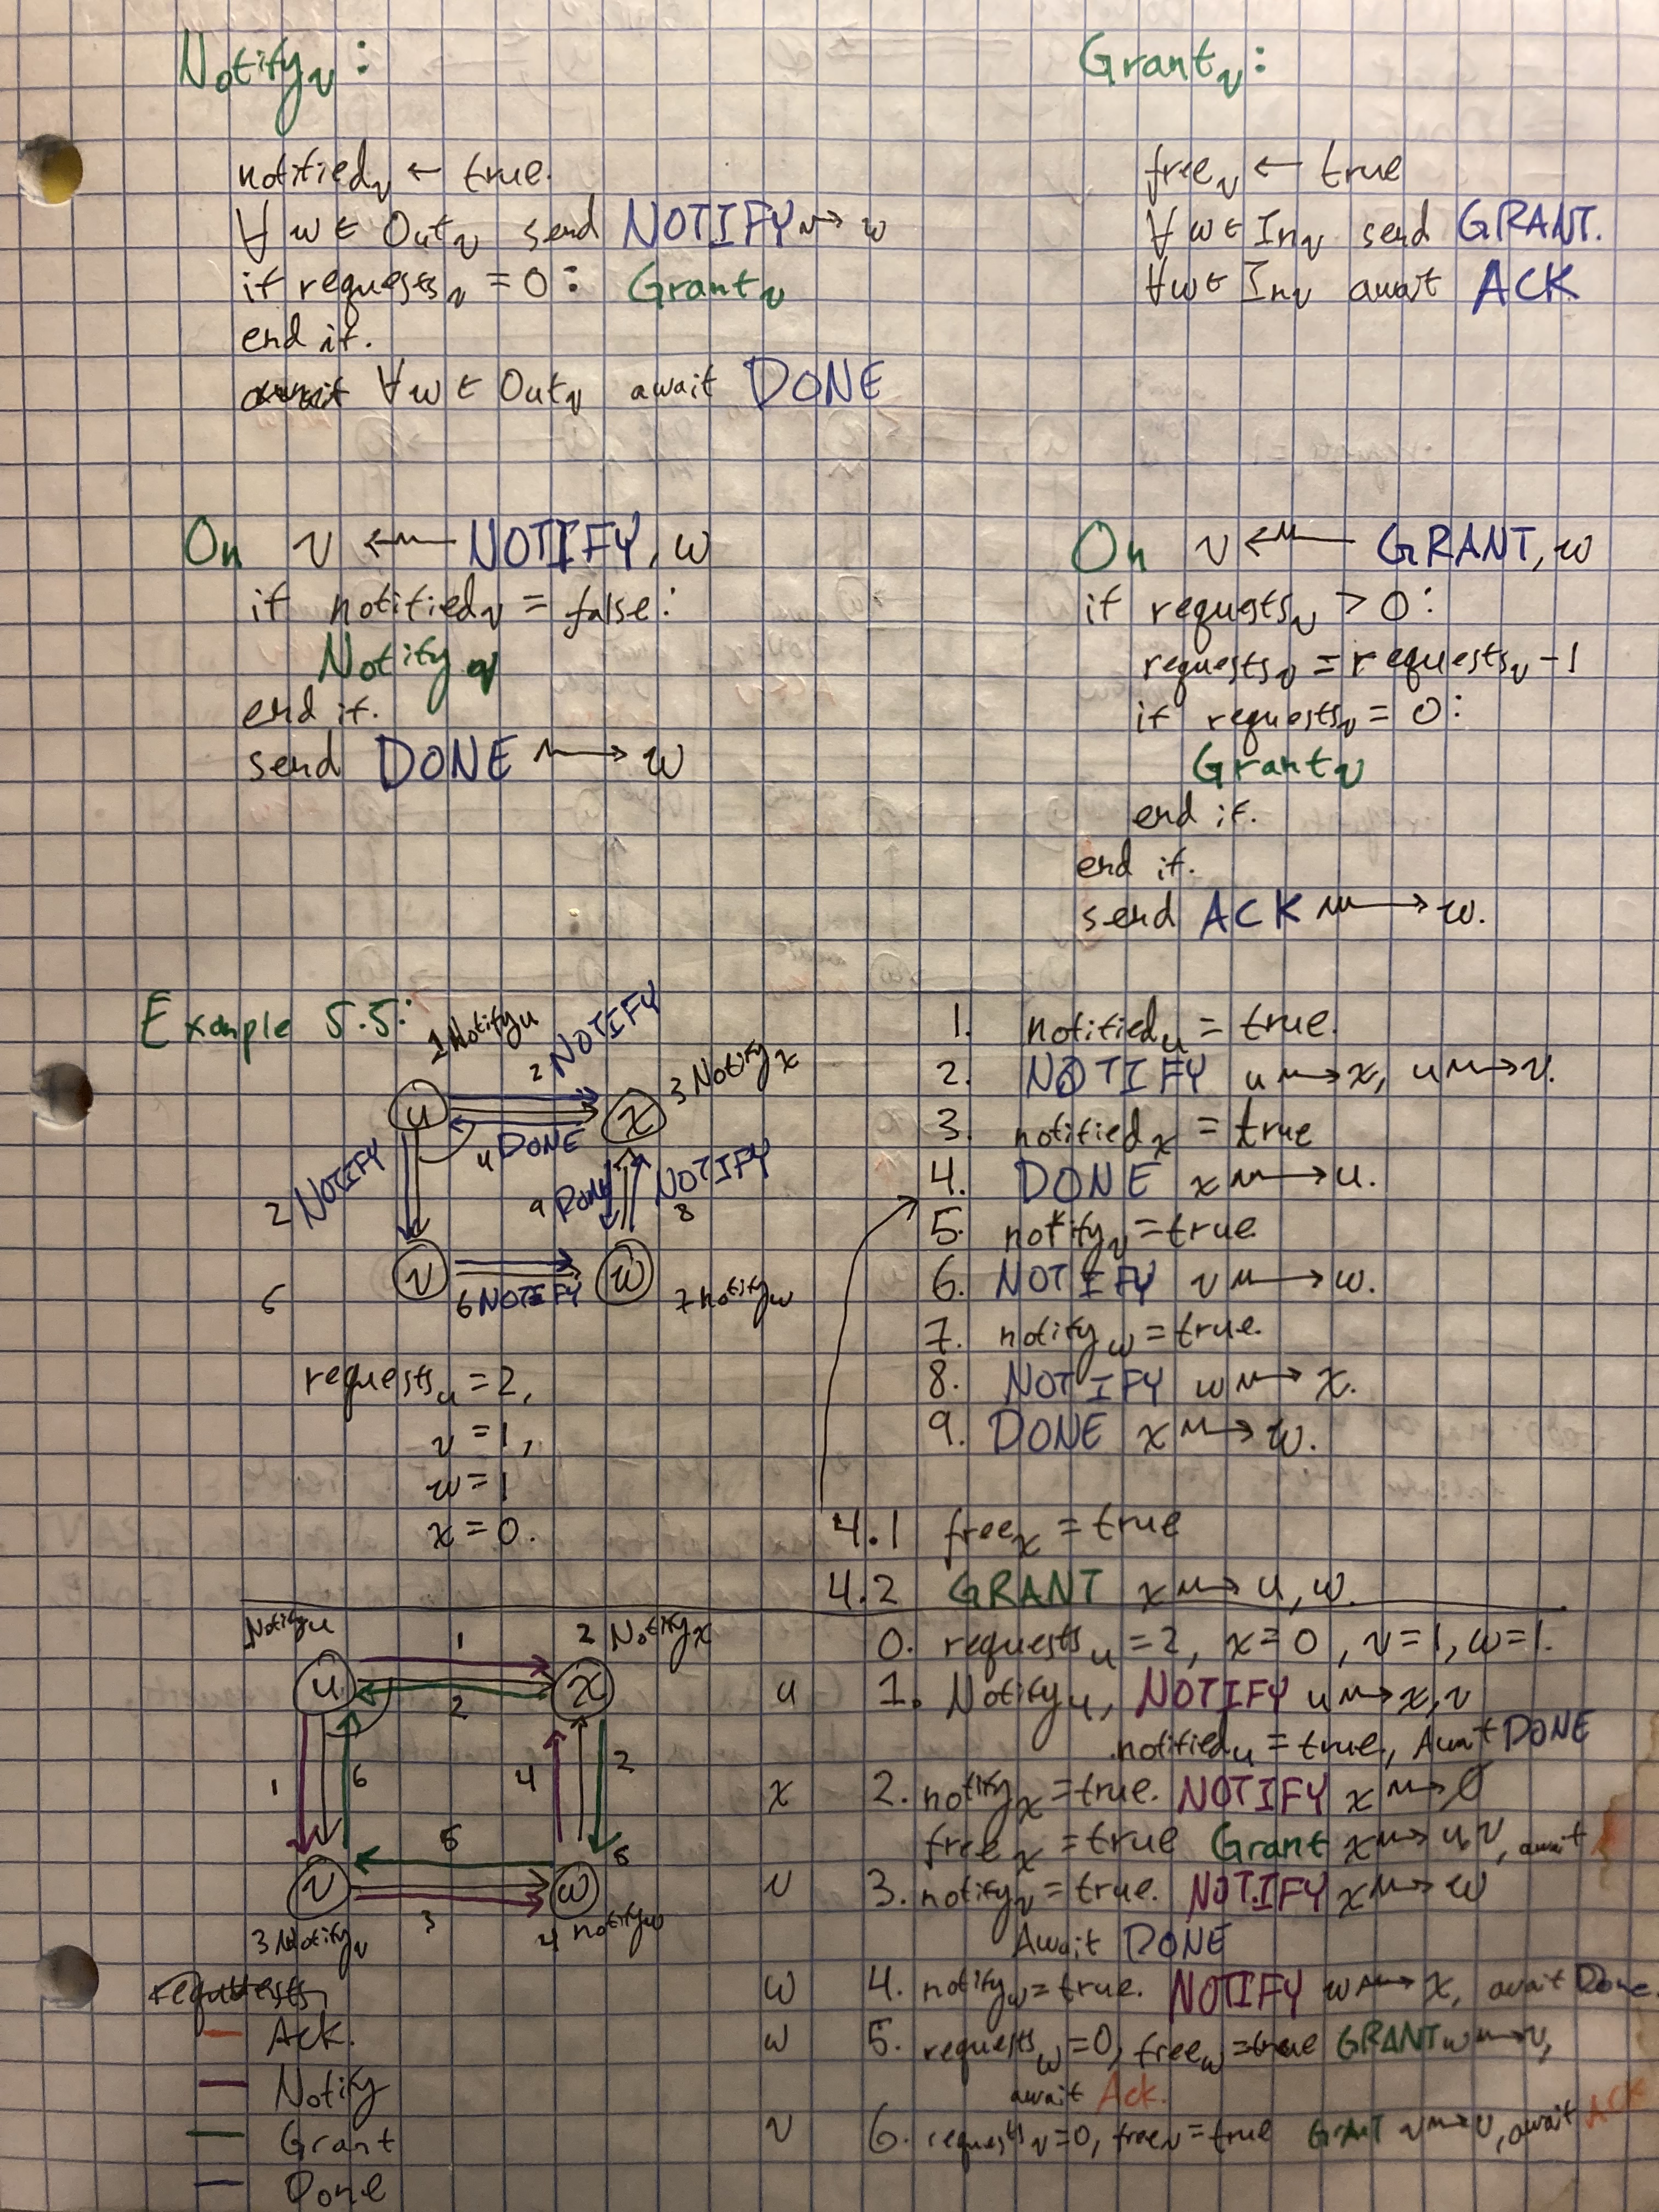 Notify_v :
notified_v ← true.
∀ w ∈ Out_v send NOTIFY ⇝ w
if requests_v = 0 : Grant_v
end if.
∀ w ∈ Out_v await DONE
Grant_v :
free_v ← true
∀ w ∈ In_v send GRANT.
∀ w ∈ In_v await ACK
On v ⇜ NOTIFY, w
if notified_v = false :
Notify_v
end if.
send DONE ⇝ w
On v ⇜ GRANT, w
if requests_v > 0 :
requests_v = requests_v - 1
if requests_v = 0 :
Grant_v
end if.
end if.
send ACK ⇝ w.
Example 5.5 :
1 Notify_u
2 NOTIFY
3 Notify_x
u
x
4 DONE
2 NOTIFY
9 Done
NOTIFY
8
v
w
6 NOTIFY
7 notify_w
requests_u = 2,
v = 1,
w = 1
x = 0.
1. notified_u = true.
2. NOTIFY u ⇝ x, u ⇝ v.
3. notified_x = true
4. DONE x ⇝ u.
5. notify_v = true
6. NOTIFY v ⇝ w.
7. notify_w = true.
8. NOTIFY w ⇝ x.
9. DONE x ⇝ w.
4.1 free_x = true
4.2 GRANT x ⇝ u, w.
Notify_u
1
2 Notify_x
u
x
2
1
6
4
2
v
w
3
3 Notify_v
4 notify_w
requests,
Ack.
Notify
Grant
Done
0. requests_u = 2, x = 0, v = 1, w = 1.
u 1. Notify_u, NOTIFY u ⇝ x, v
notified_u = true, Await DONE
x 2. notify_x = true. NOTIFY x ⇝ ∅
free_x = true Grant x ⇝ u, v, await
v 3. notify_v = true. NOTIFY x ⇝ w
Await DONE
w 4. notify_w = true. NOTIFY w ⇝ x, await Done.
w 5. requests_w = 0, free_w = true GRANT w ⇝ v,
await Ack.
v 6. requests_v = 0, free_v = true GRANT v ⇝ u, await ACK